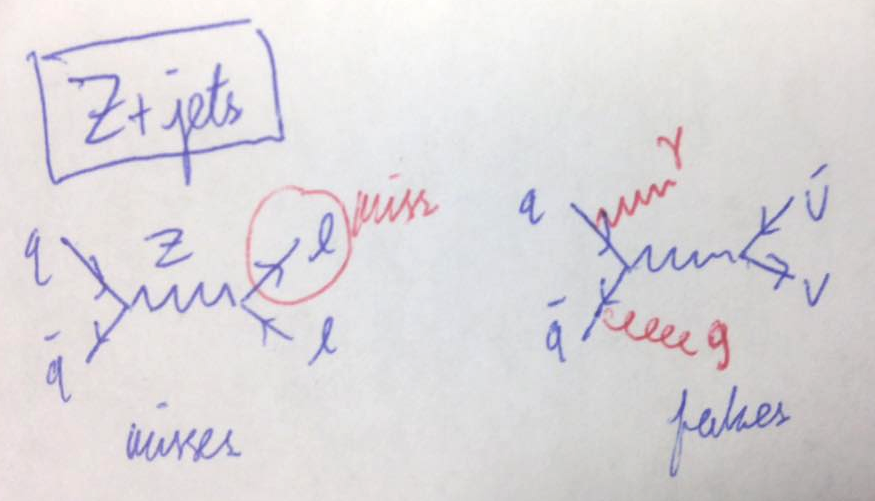 Z+jets
q Z l miss
q̄ l
misses
q γ ν̄
q̄ g ν
fakes